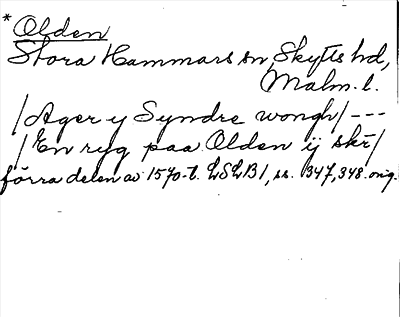 * Olden
Stora Hammars sn, Skytts hd,
Malm. l.
/Ager y Syndre wongh/ ---
/En ryg paa Olden ij skr/
förra delen av 1570-t. LSLB1, ss. 347, 348. orig.